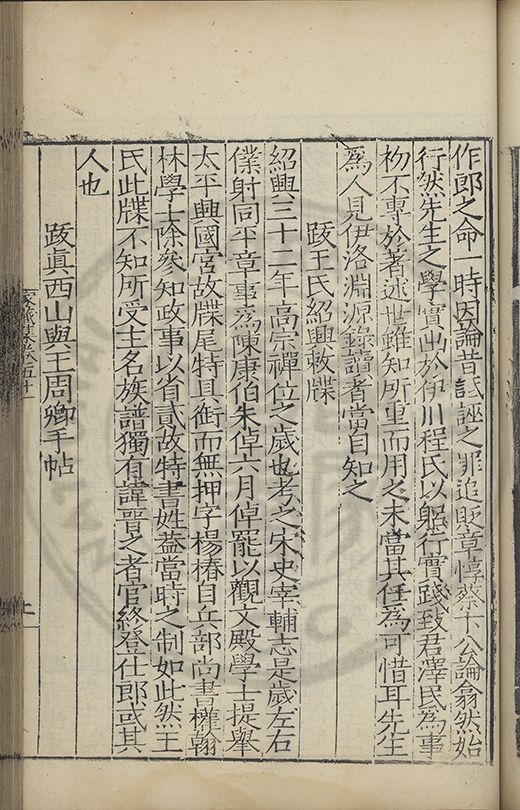 作郎之命一時因論昔詆誣之罪追貶章惇蔡卞公論翕然始
行然先生之學實出於伊川程氏以躬行實踐致君澤民為事
初不專於著述世雖知所重而用之未當其任為可惜耳先生
為人見伊洛淵源錄讀者當自知之
跋王氏紹興敕牒
紹興三十二年高宗禪位之歲也考之宋史宰輔志是歲左右
僕射同平章事為陳康伯朱倬六月倬罷以觀文殿學士提舉
太平興國宮故牒尾特具銜而無押字楊椿自兵部尚書權翰
林學士除參知政事以省貳故特書姓葢當時之制如此然王
氏此牒不知所受主名族譜獨有諱晉之者官終登仕郎或其
人也
跋真西山與王周卿手帖